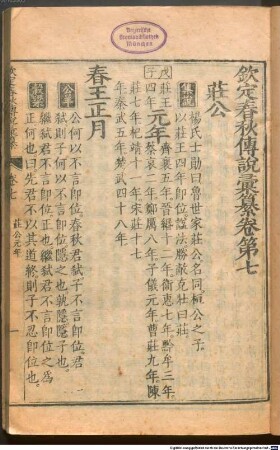 欽定春秋傳說彙纂卷第七
莊公
集說
楊氏士勛曰魯世家莊公名同桓公之子
以莊王四年即位諡法勝敵克壯曰莊
戊子
莊王四年
元年
齊襄五年晉緡十二年衛惠七年黔牟三年
蔡哀二年鄭厲八年子儀元年曹莊九年陳
莊七年杞靖十一年宋莊十七
年秦武五年楚武四十八年
春王正月
公羊
公何以不言即位春秋君弑子不言即位君
弑則子何以不言即位隱之也孰隱隱子也
穀梁
繼弑君不言即位正也繼弑君不言即位之為
正何也曰先君不以其道終則子不忍即位也
卷七
莊公元年
一